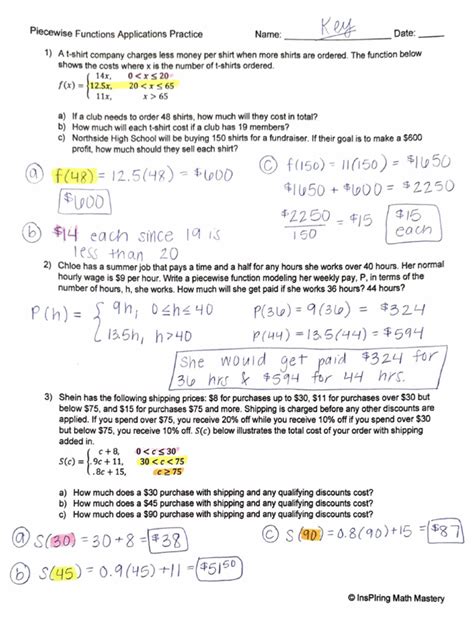 Piecewise Functions Applications Practice Name: Key Date:
1) A t-shirt company charges less money per shirt when more shirts are ordered. The function below
shows the costs where x is the number of t-shirts ordered.
f(x) = { 14x, 0 < x ≤ 20
12.5x, 20 < x ≤ 65
11x, x > 65
a) If a club needs to order 48 shirts, how much will they cost in total?
b) How much will each t-shirt cost if a club has 19 members?
c) Northside High School will be buying 150 shirts for a fundraiser. If their goal is to make a $600
profit, how much should they sell each shirt?
a f(48) = 12.5(48) = $600
$600
c f(150) = 11(150) = $1650
$1650 + $600 = $2250
$2250/150 = $15 $15 each
b $14 each since 19 is
less than 20
2) Chloe has a summer job that pays a time and a half for any hours she works over 40 hours. Her normal
hourly wage is $9 per hour. Write a piecewise function modeling her weekly pay, P, in terms of the
number of hours, h, she works. How much will she get paid if she works 36 hours? 44 hours?
P(h) = { 9h, 0≤h≤40
13.5h, h>40
P(36) = 9(36) = $324
P(44) = 13.5(44) = $594
She would get paid $324 for
36 hrs & $594 for 44 hrs.
3) Shein has the following shipping prices: $8 for purchases up to $30, $11 for purchases over $30 but
below $75, and $15 for purchases $75 and more. Shipping is charged before any other discounts are
applied. If you spend over $75, you receive 20% off while you receive 10% off if you spend over $30
but below $75, you receive 10% off. S(c) below illustrates the total cost of your order with shipping
added in.
S(c) = { c + 8, 0 < c ≤ 30
.9c + 11, 30 < c < 75
.8c + 15, c ≥ 75
a) How much does a $30 purchase with shipping and any qualifying discounts cost?
b) How much does a $45 purchase with shipping and any qualifying discounts cost?
c) How much does a $90 purchase with shipping and any qualifying discounts cost?
a S(30) = 30 + 8 = $38
c S(90) = 0.8(90) + 15 = $87
b S(45) = 0.9(45) + 11 = $51.50
© InsPIring Math Mastery